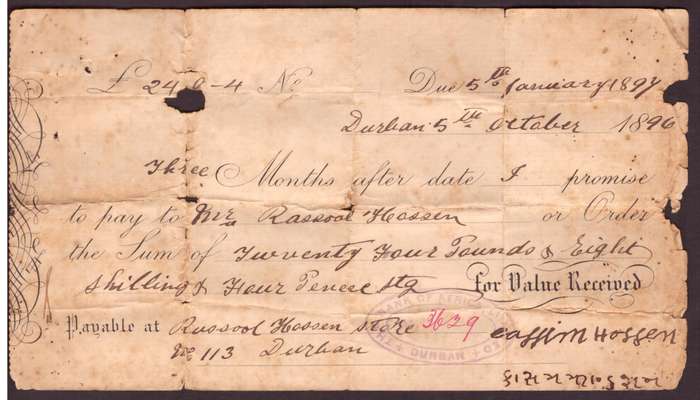 £ 24 - 4 No
Due 5th January 1897
Durban 5th October 1896
Three Months after date I promise
to pay to Mr Rassool Hossen or Order
the Sum of Twenty Four Pounds & Eight
Shilling & Four Pence stg for Value Received
Payable at Rassool Hossen Store 3629 Cassim Hossen
No 113 Durban
BANK OF AFRICA
DURBAN